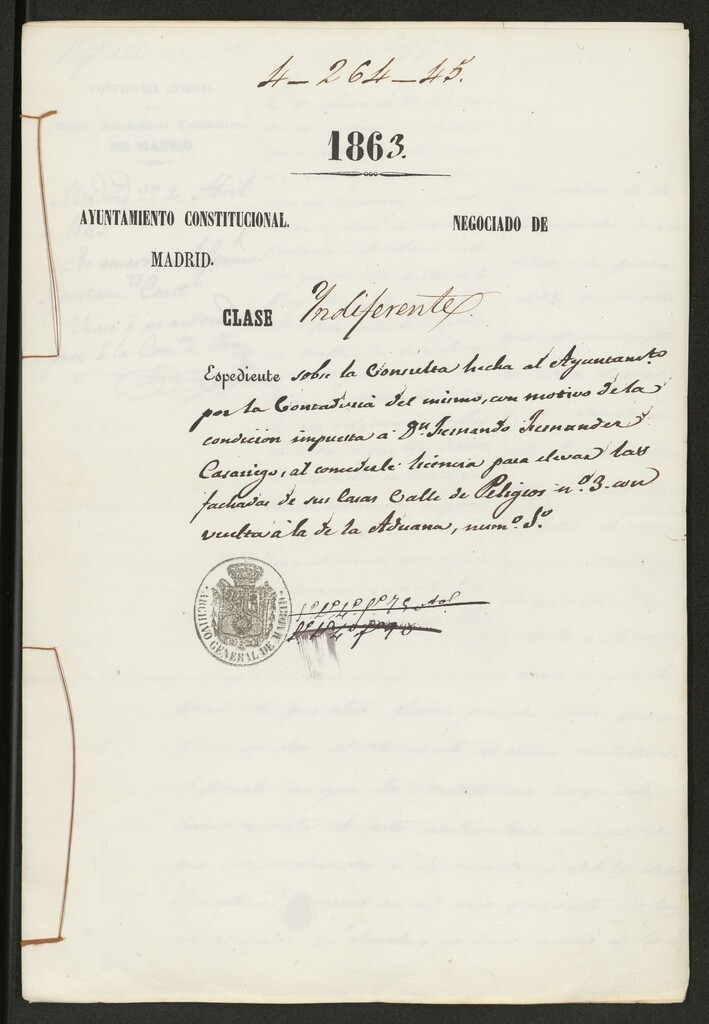 4-264-45.
1863.
AYUNTAMIENTO CONSTITUCIONAL.
MADRID.
NEGOCIADO DE
CLASE Yndiferente
Espediente sobre la Consulta hecha al Ayuntamto.
por la Contaduria del mismo, con motivo de la
condicion impuesta á Dn. Fernando Fernandez
Casariego, al concederle licencia para elevar las
fachadas de sus Casas Calle de Peligros nº. 3. con
vuelta á la de la Aduana, numº.
ARCHIVO GENERAL DE MADRID